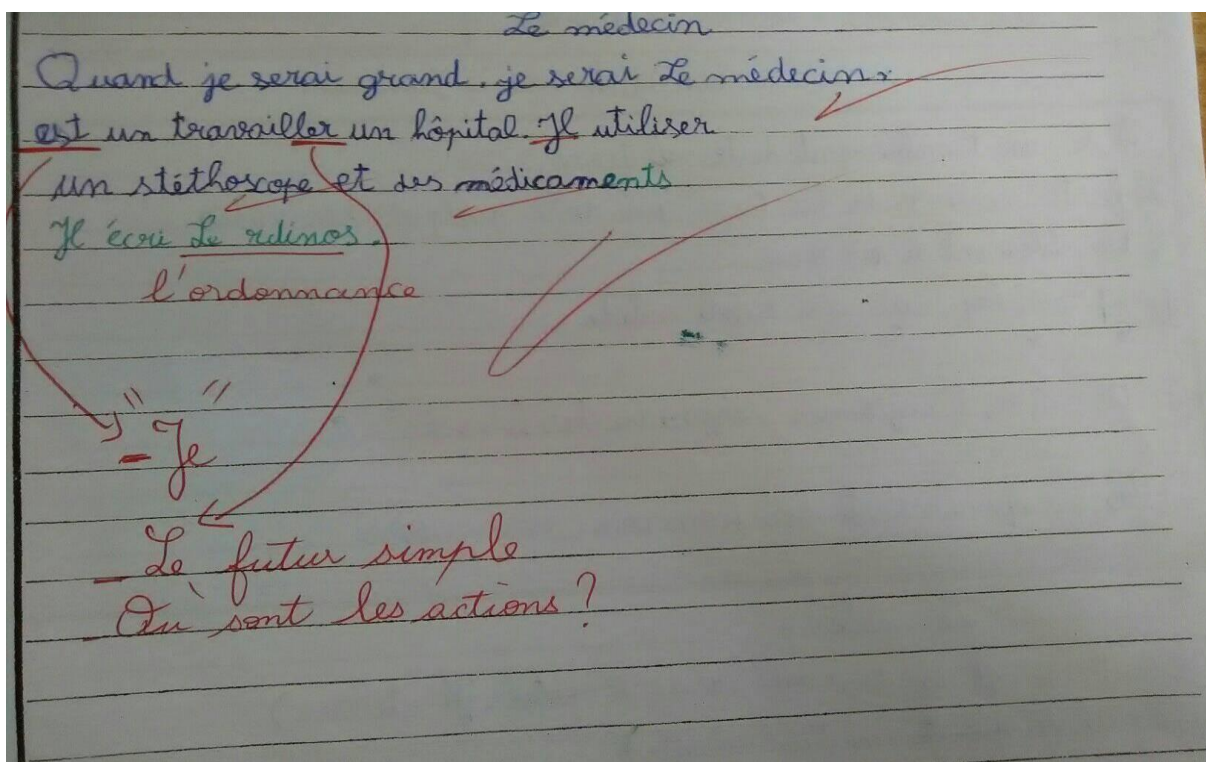 Le médecin
Quand je serai grand, je serai Le médecin.
est un travailler un hôpital. Il utiliser
un stéthoscope et des médicaments
Il écri Le rdinos.
l'ordonnance
"Je"
- Le futur simple
- Où sont les actions ?